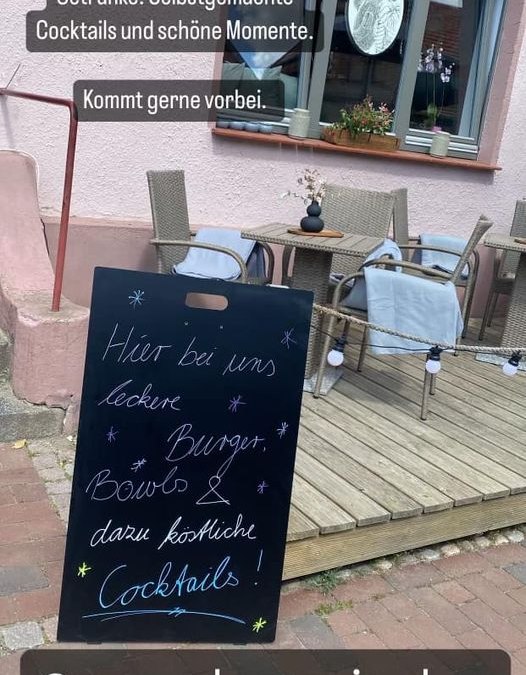 Cocktails und schöne Momente.
Kommt gerne vorbei.
Hier bei uns
leckere
Burger,
Bowls &
dazu köstliche
Cocktails!